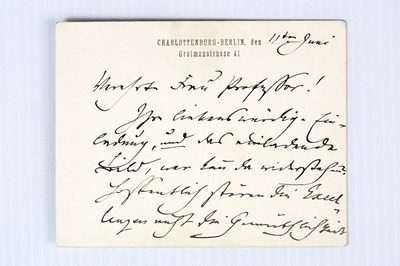 CHARLOTTENBURG-BERLIN, den 11ten Juni
Grolmanstrasse 41
Verehrte Frau Professor!
Ihre liebenswürdige Ein-
ladung, und das einladende
Bild, wer kann da widerstehen.
Hoffentlich stören die Excel-
lenzen nicht die Gemüthlichkeit